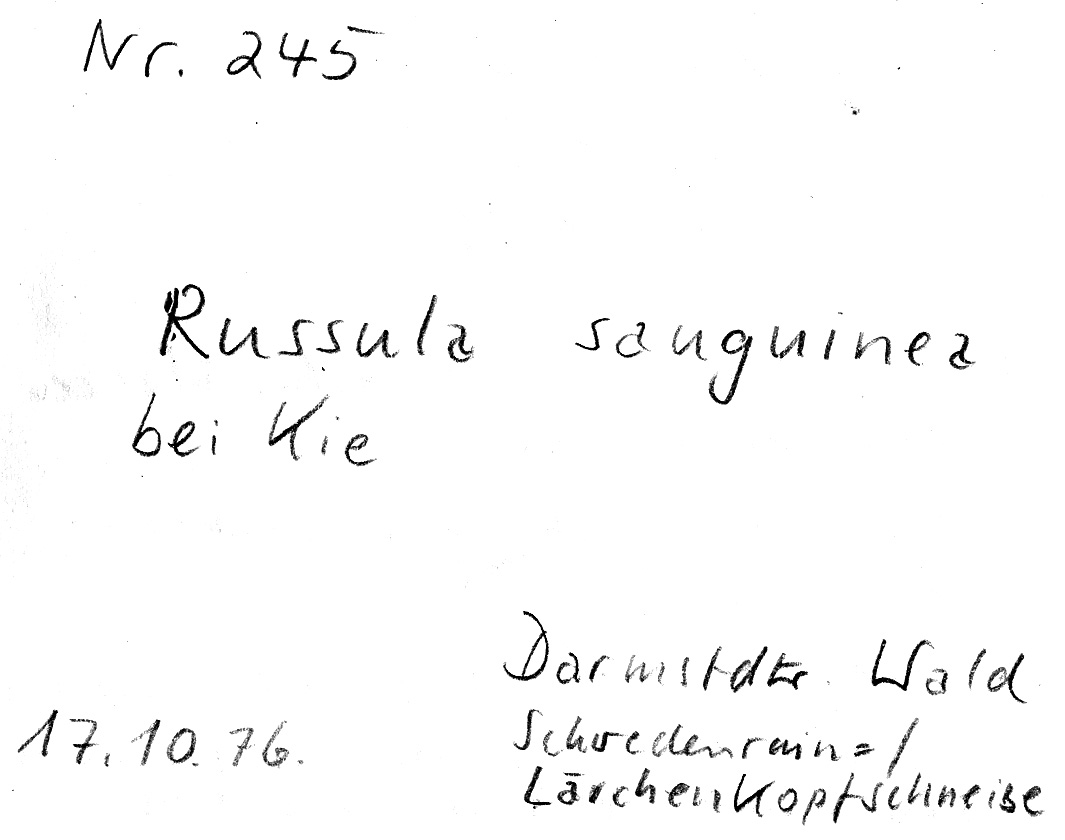 Nr. 245
Russula sanguinea
bei Kie
Darmstdtr. Wald
17.10.76.
Schwedenrain=/
Lärchenkopfschneise